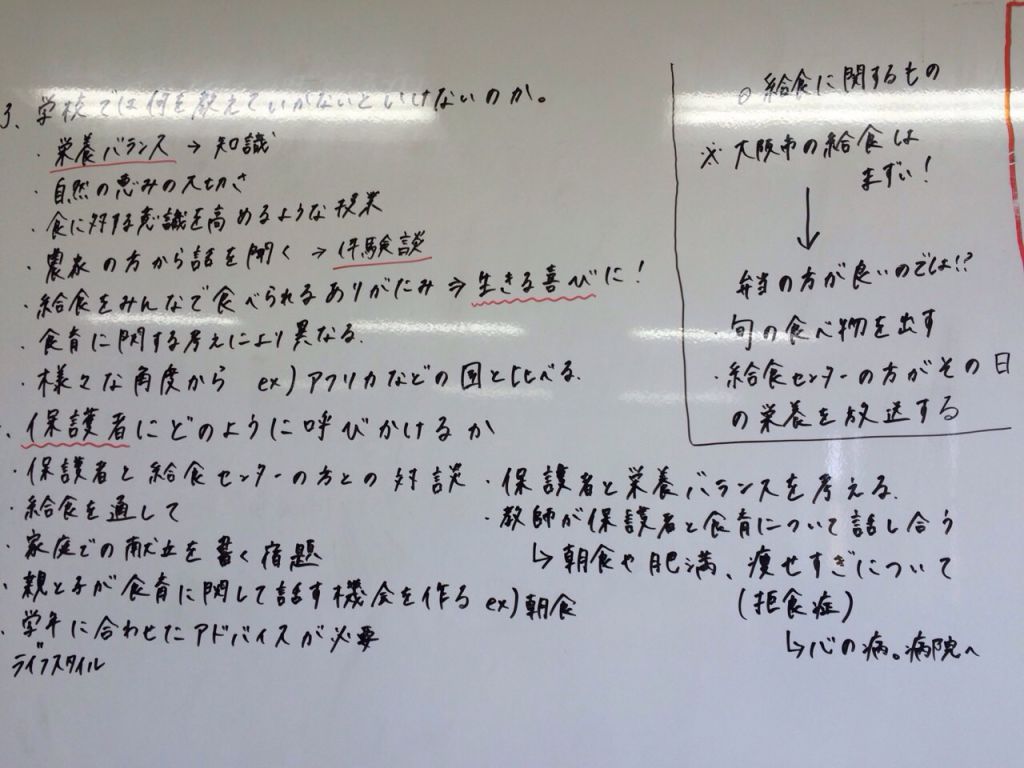 3、学校では何を教えていかないといけないのか。
・栄養バランス → 知識
・自然の恵みの大切さ
食に対する意識を高めるような授業
・農家の方から話を聞く → 体験談
・給食をみんなで食べられるありがたみ ⇒ 生きる喜びに!
・食育に関する考えにより異なる。
・様々な角度から ex)アフリカなどの国と比べる。
、保護者にどのように呼びかけるか
・保護者と給食センターの方との対談
・給食を通して
・家庭での献立を書く宿題
・親と子が食育に関して話す機会を作る ex)朝食
・学年に合わせたアドバイスが必要
ライフスタイル
・保護者と栄養バランスを考える。
・教師が保護者と食育について話し合う
↳朝食や肥満、痩せすぎについて
(拒食症)
↳心の病。病院へ
○給食に関するもの
※大阪市の給食は
まずい!
↓
弁当の方が良いのでは!?
・旬の食べ物を出す
・給食センターの方がその日
の栄養を放送する